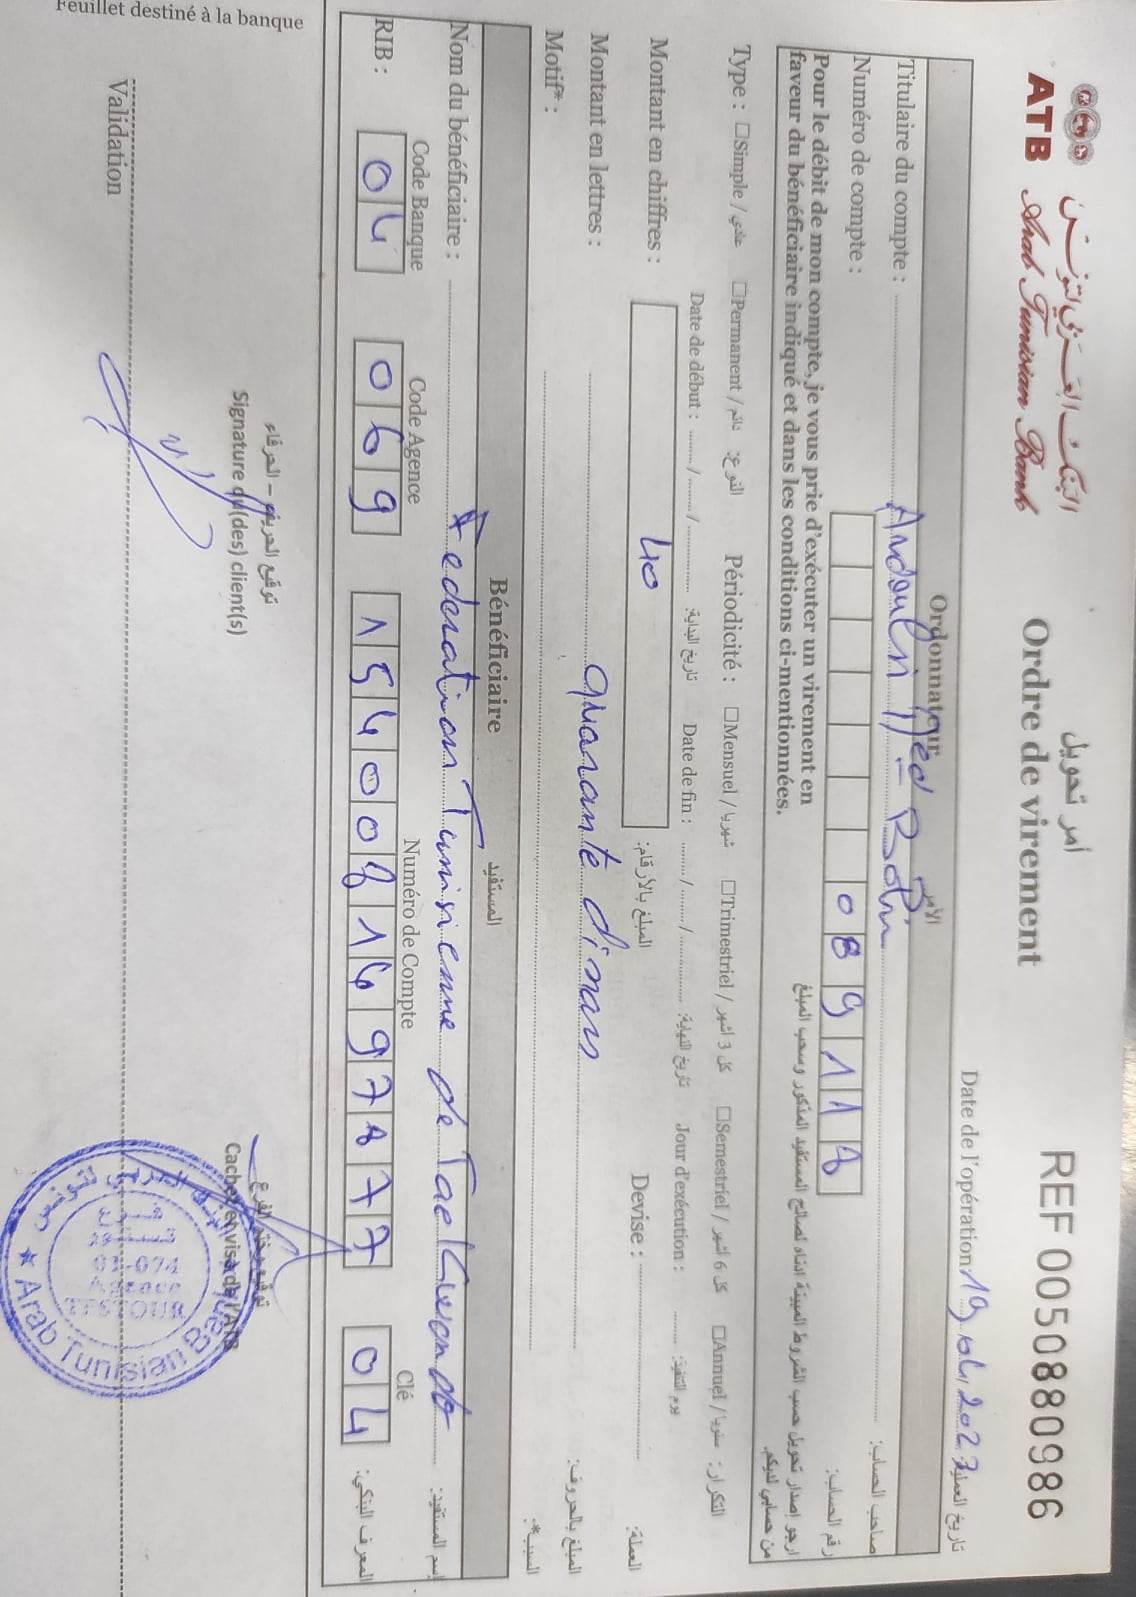 البنك العربي لتونس
ATB Arab Tunisian Bank
أمر تحويل
Ordre de virement
REF 00508880986
Date de l'opération 19/04/2023 تاريخ العملية
Ordonnateur الآمر
Titulaire du compte : صاحب الحساب:
Numéro de compte : 0891118 رقم الحساب:
Pour le débit de mon compte, je vous prie d'exécuter un virement en
faveur du bénéficiaire indiqué et dans les conditions ci-mentionnées.
أرجو إصدار تحويل حسب الشروط المبينة أدناه لصالح المستفيد المذكور وسحب المبلغ
من حسابي لديكم.
Type : □Simple / عادي □Permanent / دائم النوع: Périodicité : □Mensuel / شهريا □Trimestriel / كل 3 أشهر □Semestriel / كل 6 أشهر □Annuel / سنويا التكرار:
Date de début : ...... / ...... / ...... تاريخ البداية: Date de fin : ...... / ...... / ...... تاريخ النهاية: Jour d'exécution : ...... يوم التنفيذ:
Montant en chiffres : 40 المبلغ بالأرقام: Devise : العملة:
Montant en lettres : quarante dinars المبلغ بالحروف:
Motif* : السبب*:
Bénéficiaire المستفيد
Nom du bénéficiaire : Federation Tunisienne de Taekwondo إسم المستفيد:
Code Banque Code Agence Numéro de Compte Clé
RIB : 04 069 1540081497877 04 المعرف البنكي:
توقيع الحريف - الحرفاء
Signature du(des) client(s)
Cachet en visa de l'ATB
Arab Tunisian Bank
Agence
TESTOUR
Validation
Feuillet destiné à la banque